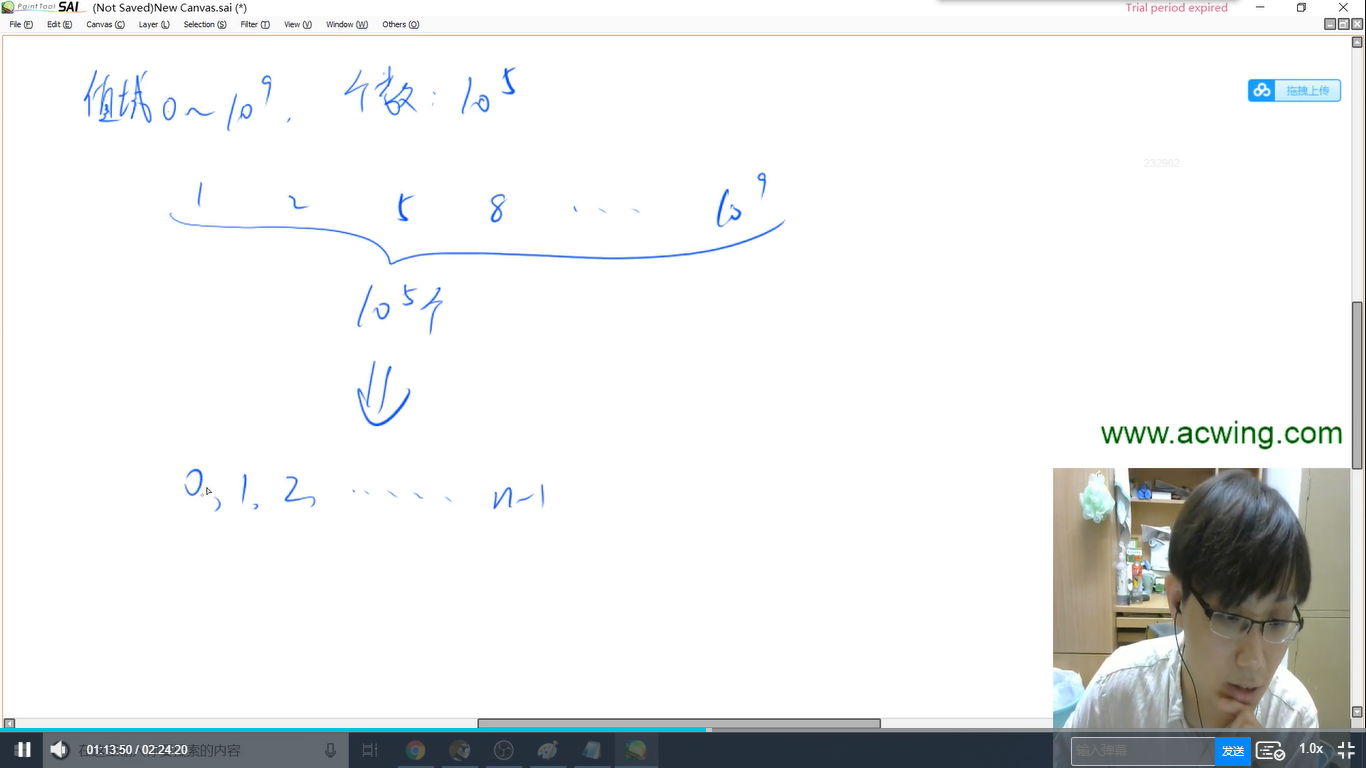 PaintTool SAI (Not Saved)New Canvas.sai (*)
Trial period expired
File (F) Edit (E) Canvas (C) Layer (L) Selection (S) Filter (T) View (V) Window (W) Others (O)
值域0～10⁹. 个数: 10⁵
拖拽上传
232902
1 2 5 8 ... 10⁹
10⁵个
www.acwing.com
0, 1, 2, ...... n-1
01:13:50 / 02:24:20
索的内容
输入弹幕
发送
1.0x